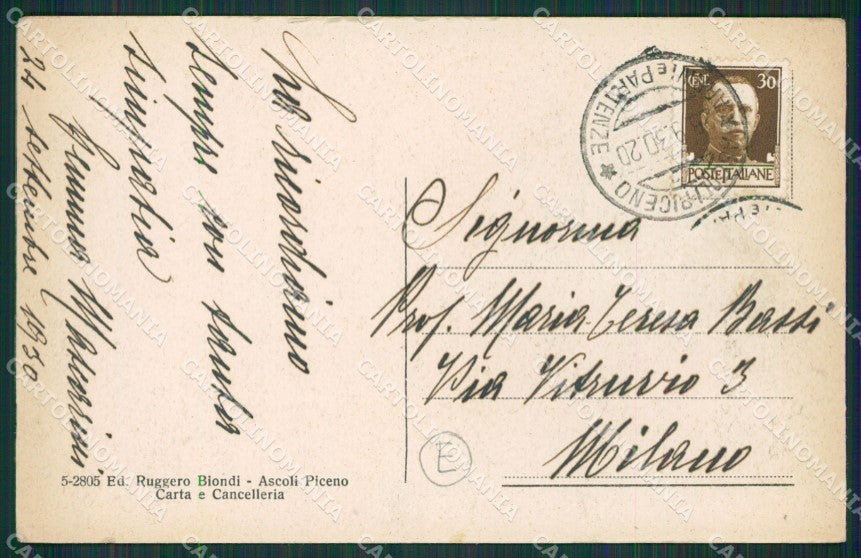 La ricordiamo
sempre con tanta
simpatia
Gemma Mascarini
24 settembre 1930
CENT. 30
POSTE ITALIANE
ARRIVI E PARTENZE
30.20
PICENO
Signorina
Prof. Maria Teresa Bassi
Via Vitruvio 3
Milano
E
5-2805 Ed. Ruggero Biondi - Ascoli Piceno
Carta e Cancelleria
CARTOLINOMANIA